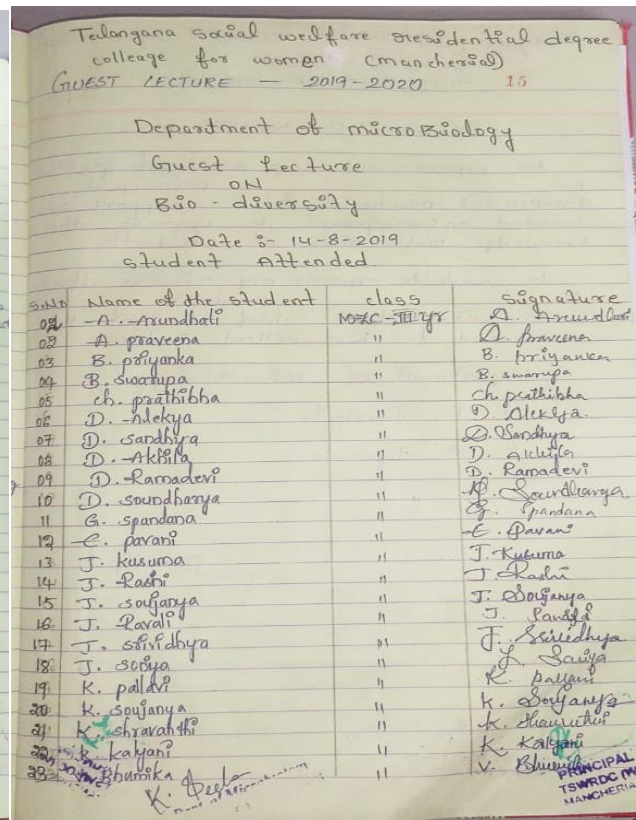 Telangana social welfare residential degree
colleage for women (mancherial)
GUEST LECTURE — 2019-2020 15
Department of microBiology
Guest Lecture
ON
Bio - diversity
Date :- 14-8-2019
student Attended
S.No Name of the student class Signature
01 A. Arundhati MZC-III yr A. Arundhati
02 A. praveena " A. praveena
03 B. priyanka " B. priyanka
04 B. swarupa " B. swarupa
05 ch. prathibha " ch. prathibha
06 D. Alekya " D. Alekya.
07 D. sandhya " D. Sandhya
08 D. Akhila " D. Akhila
09 D. Ramadevi " D. Ramadevi
10 D. soundharya " D. Soundharya
11 G. spandana " G. Spandana
12 E. pavani " E. Pavani
13 J. kusuma " J. Kusuma
14 J. Rashi " J. Rashi
15 J. soujanya " J. Soujanya
16 J. Ravali " J.
17 J. srividhya " J. Srividhya
18 J. soriya " J.
19 K. pallavi " K. pallavi
20 K. soujanya " K. Soujanya
21 K. shravanthi " K.
22 K. kalyani " K. Kalyani
23 Bhumika " V.
K.
PRINCIPAL
TSWRDC (W)
MANCHERIA